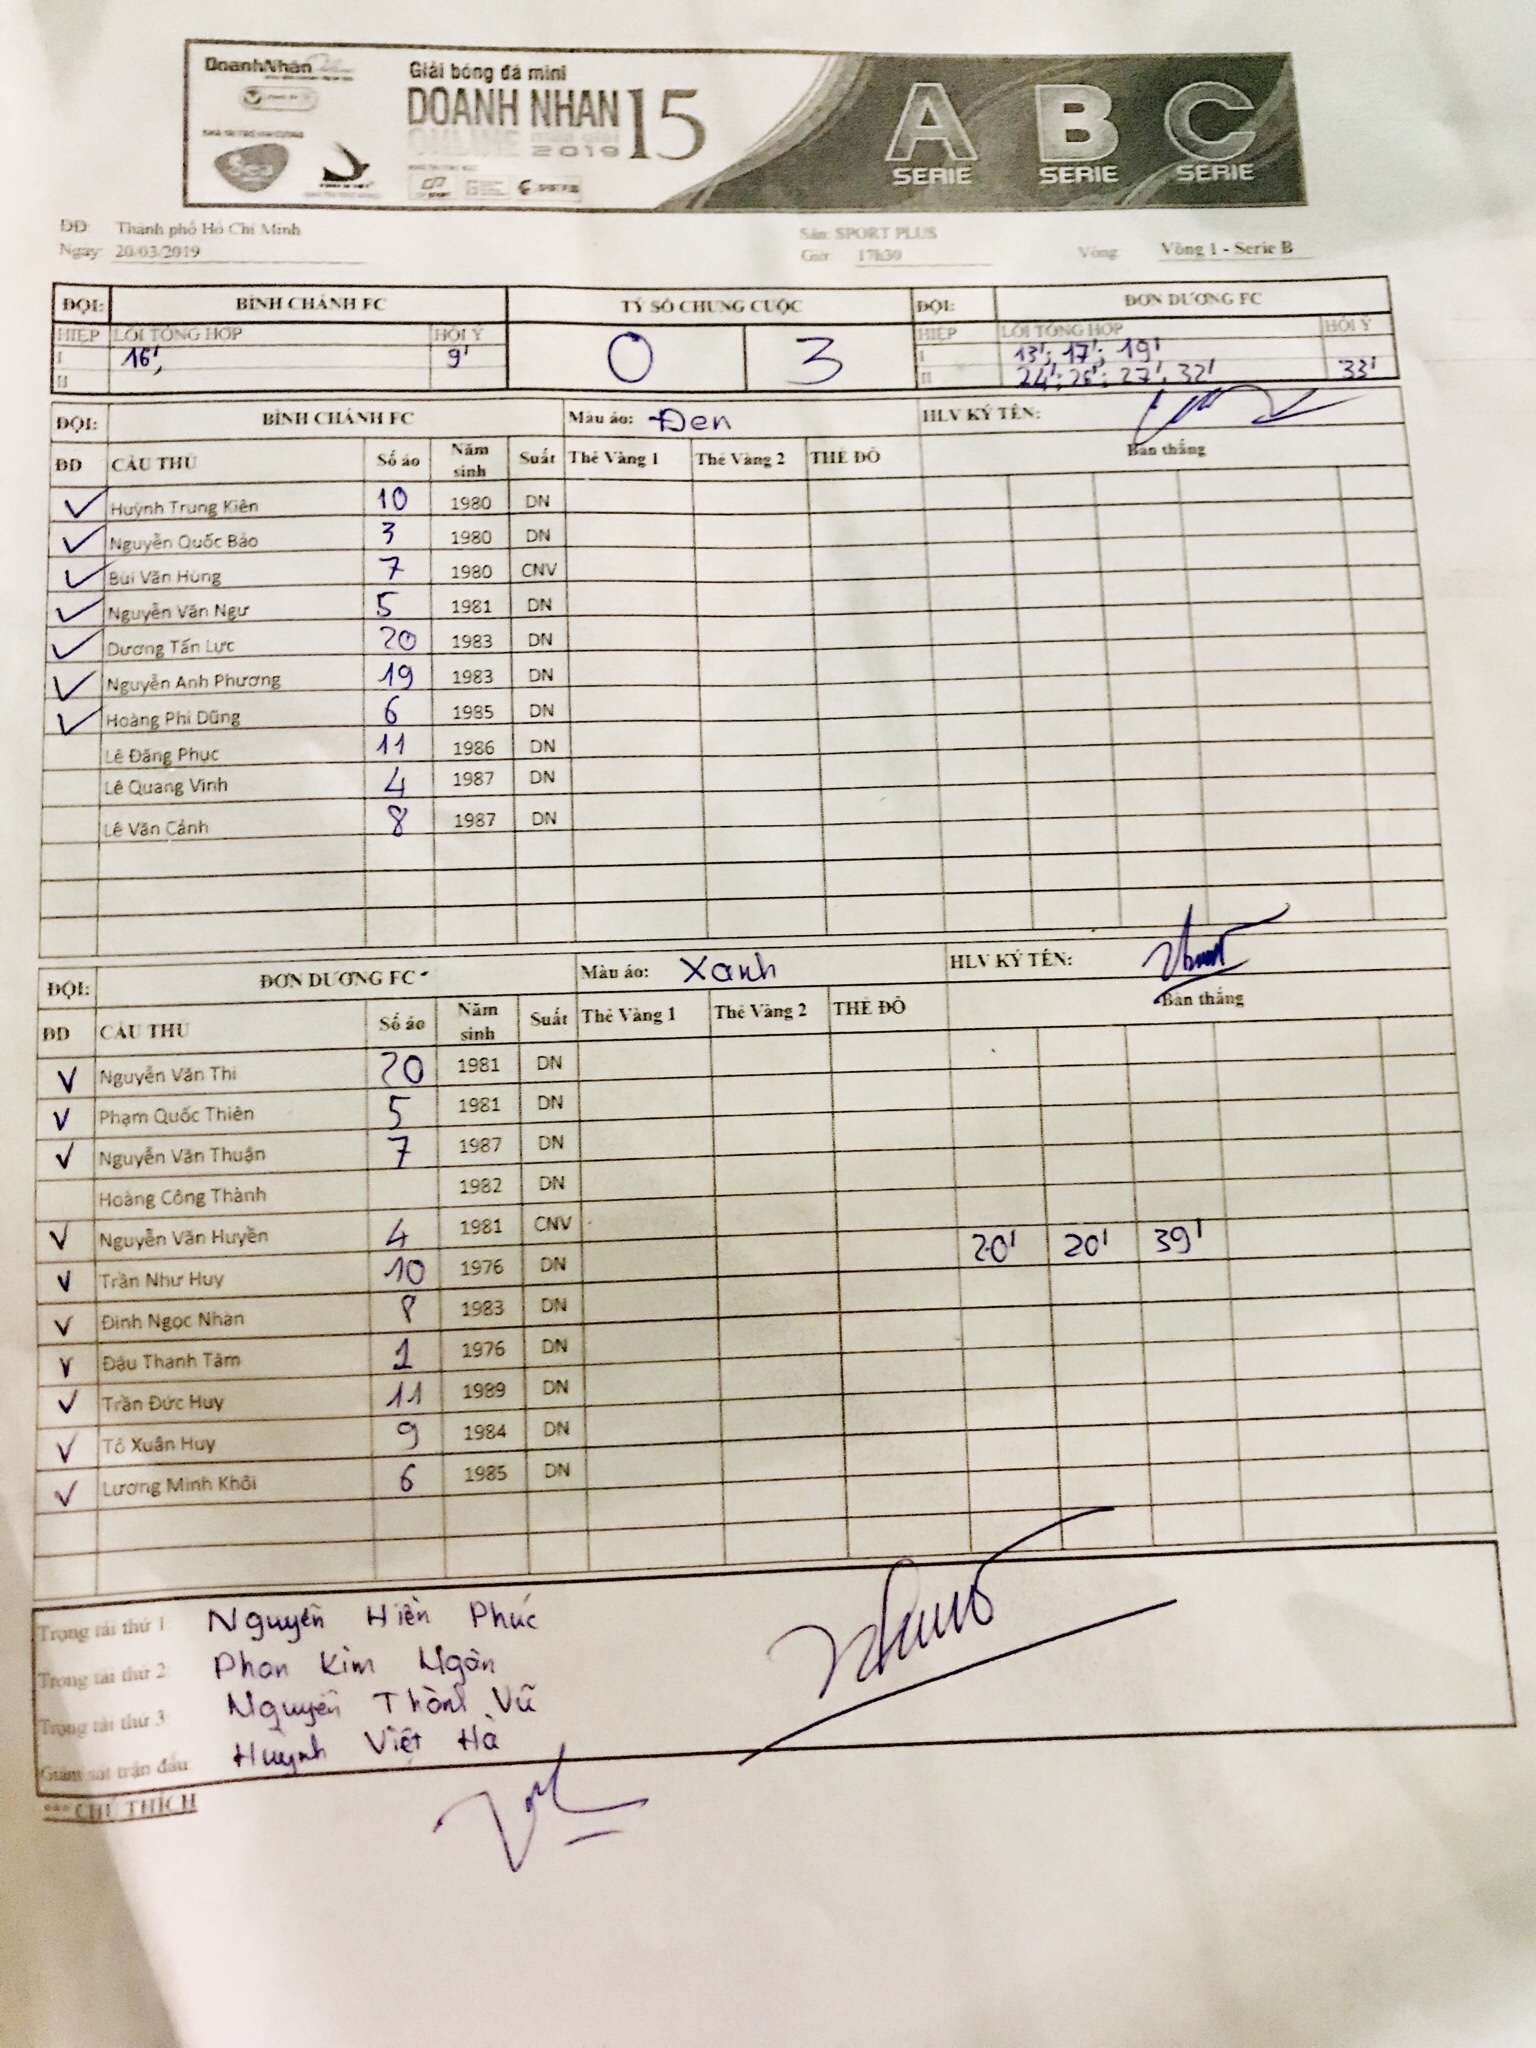 DoanhNhân
Giải bóng đá mini
DOANH NHÂN 15
ONLINE
2019
A B C
SERIE SERIE SERIE
ĐĐ: Thành phố Hồ Chí Minh Sân: SPORT PLUS
Ngày: 20/03/2019 Giờ: 17h30 Vòng: Vòng 1 - Serie B
ĐỘI: BÌNH CHÁNH FC TỶ SỐ CHUNG CUỘC ĐỘI: ĐƠN DƯƠNG FC
HIỆP LỖI TỔNG HỢP HỘI Ý 0 3 HIỆP LỖI TỔNG HỢP HỘI Ý
I 16', 9' I 13'; 17'; 19'
II II 24'; 26'; 27', 32' 33'
ĐỘI: BÌNH CHÁNH FC Màu áo: Đen HLV KÝ TÊN:
ĐD CẦU THỦ Số áo Năm sinh Suất Thẻ Vàng 1 Thẻ Vàng 2 THẺ ĐỎ Bàn thắng
✓ Huỳnh Trung Kiên 10 1980 DN
✓ Nguyễn Quốc Bảo 3 1980 DN
✓ Bùi Văn Hùng 7 1980 CNV
✓ Nguyễn Văn Ngư 5 1981 DN
✓ Dương Tấn Lực 20 1983 DN
✓ Nguyễn Anh Phương 19 1983 DN
✓ Hoàng Phi Dũng 6 1985 DN
Lê Đăng Phục 11 1986 DN
Lê Quang Vinh 4 1987 DN
Lê Văn Cảnh 8 1987 DN
ĐỘI: ĐƠN DƯƠNG FC Màu áo: Xanh HLV KÝ TÊN:
ĐD CẦU THỦ Số áo Năm sinh Suất Thẻ Vàng 1 Thẻ Vàng 2 THẺ ĐỎ Bàn thắng
✓ Nguyễn Văn Thi 20 1981 DN
✓ Phạm Quốc Thiên 5 1981 DN
✓ Nguyễn Văn Thuận 7 1987 DN
Hoàng Công Thành 1982 DN
✓ Nguyễn Văn Huyền 4 1981 CNV
✓ Trần Như Huy 10 1976 DN 20' 20' 39'
✓ Đinh Ngọc Nhàn 8 1983 DN
✓ Đậu Thanh Tâm 1 1976 DN
✓ Trần Đức Huy 11 1989 DN
✓ Tô Xuân Huy 9 1984 DN
✓ Lương Minh Khôi 6 1985 DN
Trọng tài thứ 1: Nguyễn Hiền Phúc
Trọng tài thứ 2: Phan Kim Ngân
Trọng tài thứ 3: Nguyễn Thành Vũ
Giám sát trận đấu: Huỳnh Việt Hà
*** CHÚ THÍCH